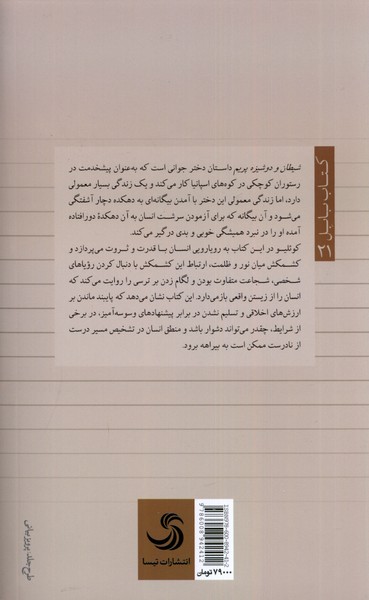 کتاب بابل
شیطان و دوشیزه پریم داستان دختر جوانی است که به‌عنوان پیشخدمت در
رستوران کوچکی در کوه‌های اسپانیا کار می‌کند و یک زندگی بسیار معمولی
دارد، اما زندگی معمولی این دختر با آمدن بیگانه‌ای به دهکده دچار آشفتگی
می‌شود و آن بیگانه که برای آزمودن سرشت انسان به آن دهکدۀ دورافتاده
آمده او را در نبرد همیشگی خوبی و بدی درگیر می‌کند.
کوئلیو در این کتاب به رویارویی انسان با قدرت و ثروت می‌پردازد و
کشمکش میان نور و ظلمت، ارتباط این کشمکش با دنبال کردن رؤیاهای
شخصی، شجاعت متفاوت بودن و لگام زدن بر ترسی را روایت می‌کند که
انسان را از زیستن واقعی بازمی‌دارد. این کتاب نشان می‌دهد که پایبند ماندن بر
ارزش‌های اخلاقی و تسلیم نشدن در برابر پیشنهادهای وسوسه‌آمیز، در برخی
از شرایط، چقدر می‌تواند دشوار باشد و منطق انسان در تشخیص مسیر درست
از نادرست ممکن است به بیراهه برود.
طرح جلد: پرویز بیانی
انتشارات تیسا
ISBN978-600-8942-41-2
9786008942412
۷۹۰۰۰ تومان